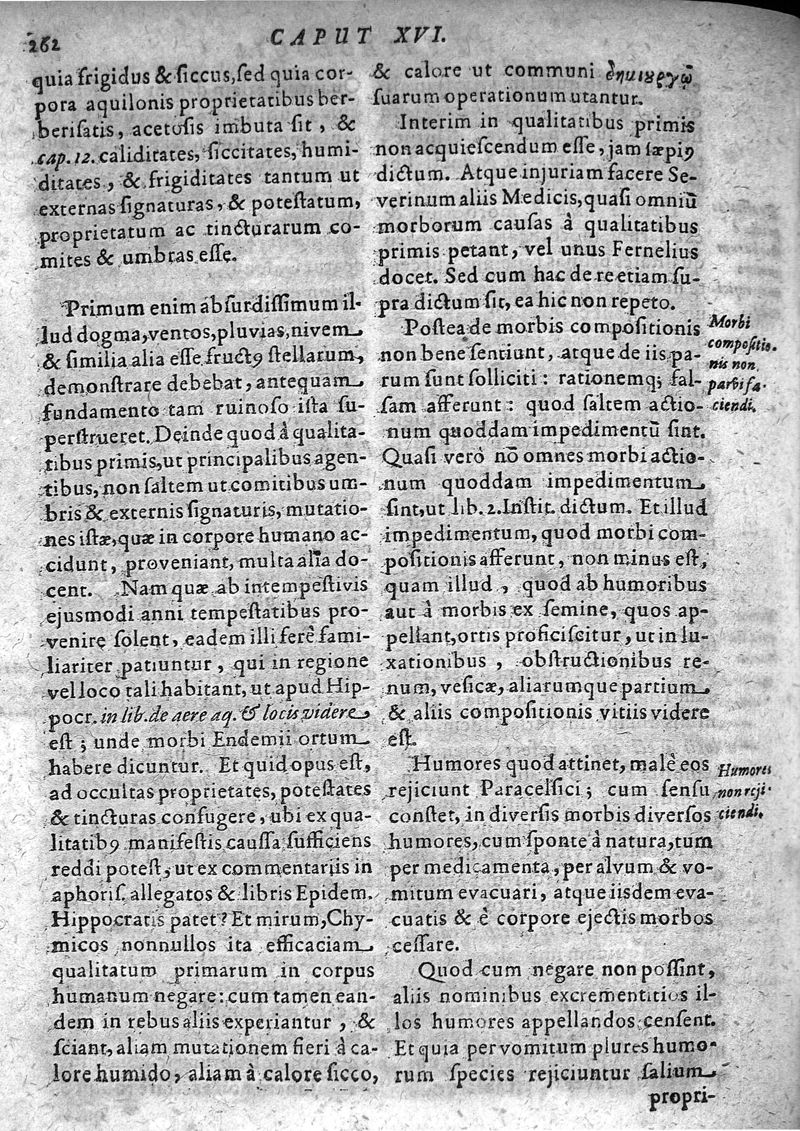 262
CAPUT XVI.
quia frigidus & ſiccus, ſed quia cor-
pora aquilonis proprietatibus ber-
beriſatis, acetoſis imbuta ſit, &
cap. 12. caliditates, ſiccitates, humi-
ditates, & frigiditates tantum ut
externas ſignaturas, & poteſtatum,
proprietatum ac tincturarum co-
mites & umbras eſſe.
Primum enim abſurdiſſimum il-
lud dogma, ventos, pluvias, nivem
& ſimilia alia eſſe fructꝰ ſtellarum,
demonſtrare debebat, antequam
fundamento tam ruinoſo iſta ſu-
perſtrueret. Deinde quod à qualita-
tibus primis, ut principalibus agen-
tibus, non ſaltem ut comitibus um-
bris & externis ſignaturis, mutatio-
nes iſtæ, quæ in corpore humano ac-
cidunt, proveniant, multa alia do-
cent. Nam quæ ab intempeſtivis
ejusmodi anni tempeſtatibus pro-
venire ſolent, eadem illi ferè fami-
liariter patiuntur, qui in regione
vel loco tali habitant, ut apud Hip-
pocr. in lib. de aere aq. & locis videre
eſt; unde morbi Endemii ortum
habere dicuntur. Et quid opus eſt,
ad occultas proprietates, poteſtates
& tincturas confugere, ubi ex qua-
litatibꝰ manifeſtis cauſſa ſufficiens
reddi poteſt, ut ex commentariis in
aphoriſ. allegatos & libris Epidem.
Hippocratis patet? Et mirum, Chy-
micos nonnullos ita efficaciam
qualitatum primarum in corpus
humanum negare: cum tamen ean-
dem in rebus aliis experiantur, &
ſciant, aliam mutationem fieri à ca-
lore humido, aliam à calore ſicco,
& calore ut communi δημιουργῷ
ſuarum operationum utantur.
Interim in qualitatibus primis
non acquieſcendum eſſe, jam ſæpiꝰ
dictum. Atque injuriam facere Se-
verinum aliis Medicis, quaſi omniū
morborum cauſas à qualitatibus
primis petant, vel unus Fernelius
docet. Sed cum hac de re etiam ſu-
pra dictum ſit, ea hic non repeto.
Poſtea de morbis compoſitionis
non bene ſentiunt, atque de iis pa-
rum ſunt ſolliciti: rationemq; fal-
ſam afferunt: quod ſaltem actio-
num quoddam impedimentū ſint.
Quaſi verò nō omnes morbi actio-
num quoddam impedimentum
ſint, ut lib. 2. Inſtit. dictum. Et illud
impedimentum, quod morbi com-
poſitionis afferunt, non minus eſt,
quam illud, quod ab humoribus
aut à morbis ex ſemine, quos ap-
pellant, ortis proficiſcitur, ut in lu-
xationibus, obſtructionibus re-
num, veſicæ, aliarumque partium
& aliis compoſitionis vitiis videre
eſt.
Humores quod attinet, malè eos
rejiciunt Paracelſici; cum ſenſu
conſtet, in diverſis morbis diverſos
humores, cum ſponte à natura, tum
per medicamenta, per alvum & vo-
mitum evacuari, atque iisdem eva-
cuatis & è corpore ejectis morbos
ceſſare.
Quod cum negare non poſſint,
aliis nominibus excrementitios il-
los humores appellandos cenſent.
Et quia per vomitum plures humo-
rum ſpecies rejiciuntur ſalium
propri-
Morbi
compoſitio-
nis non
parvi fa-
ciendi.
Humores
non reji-
ciendi.